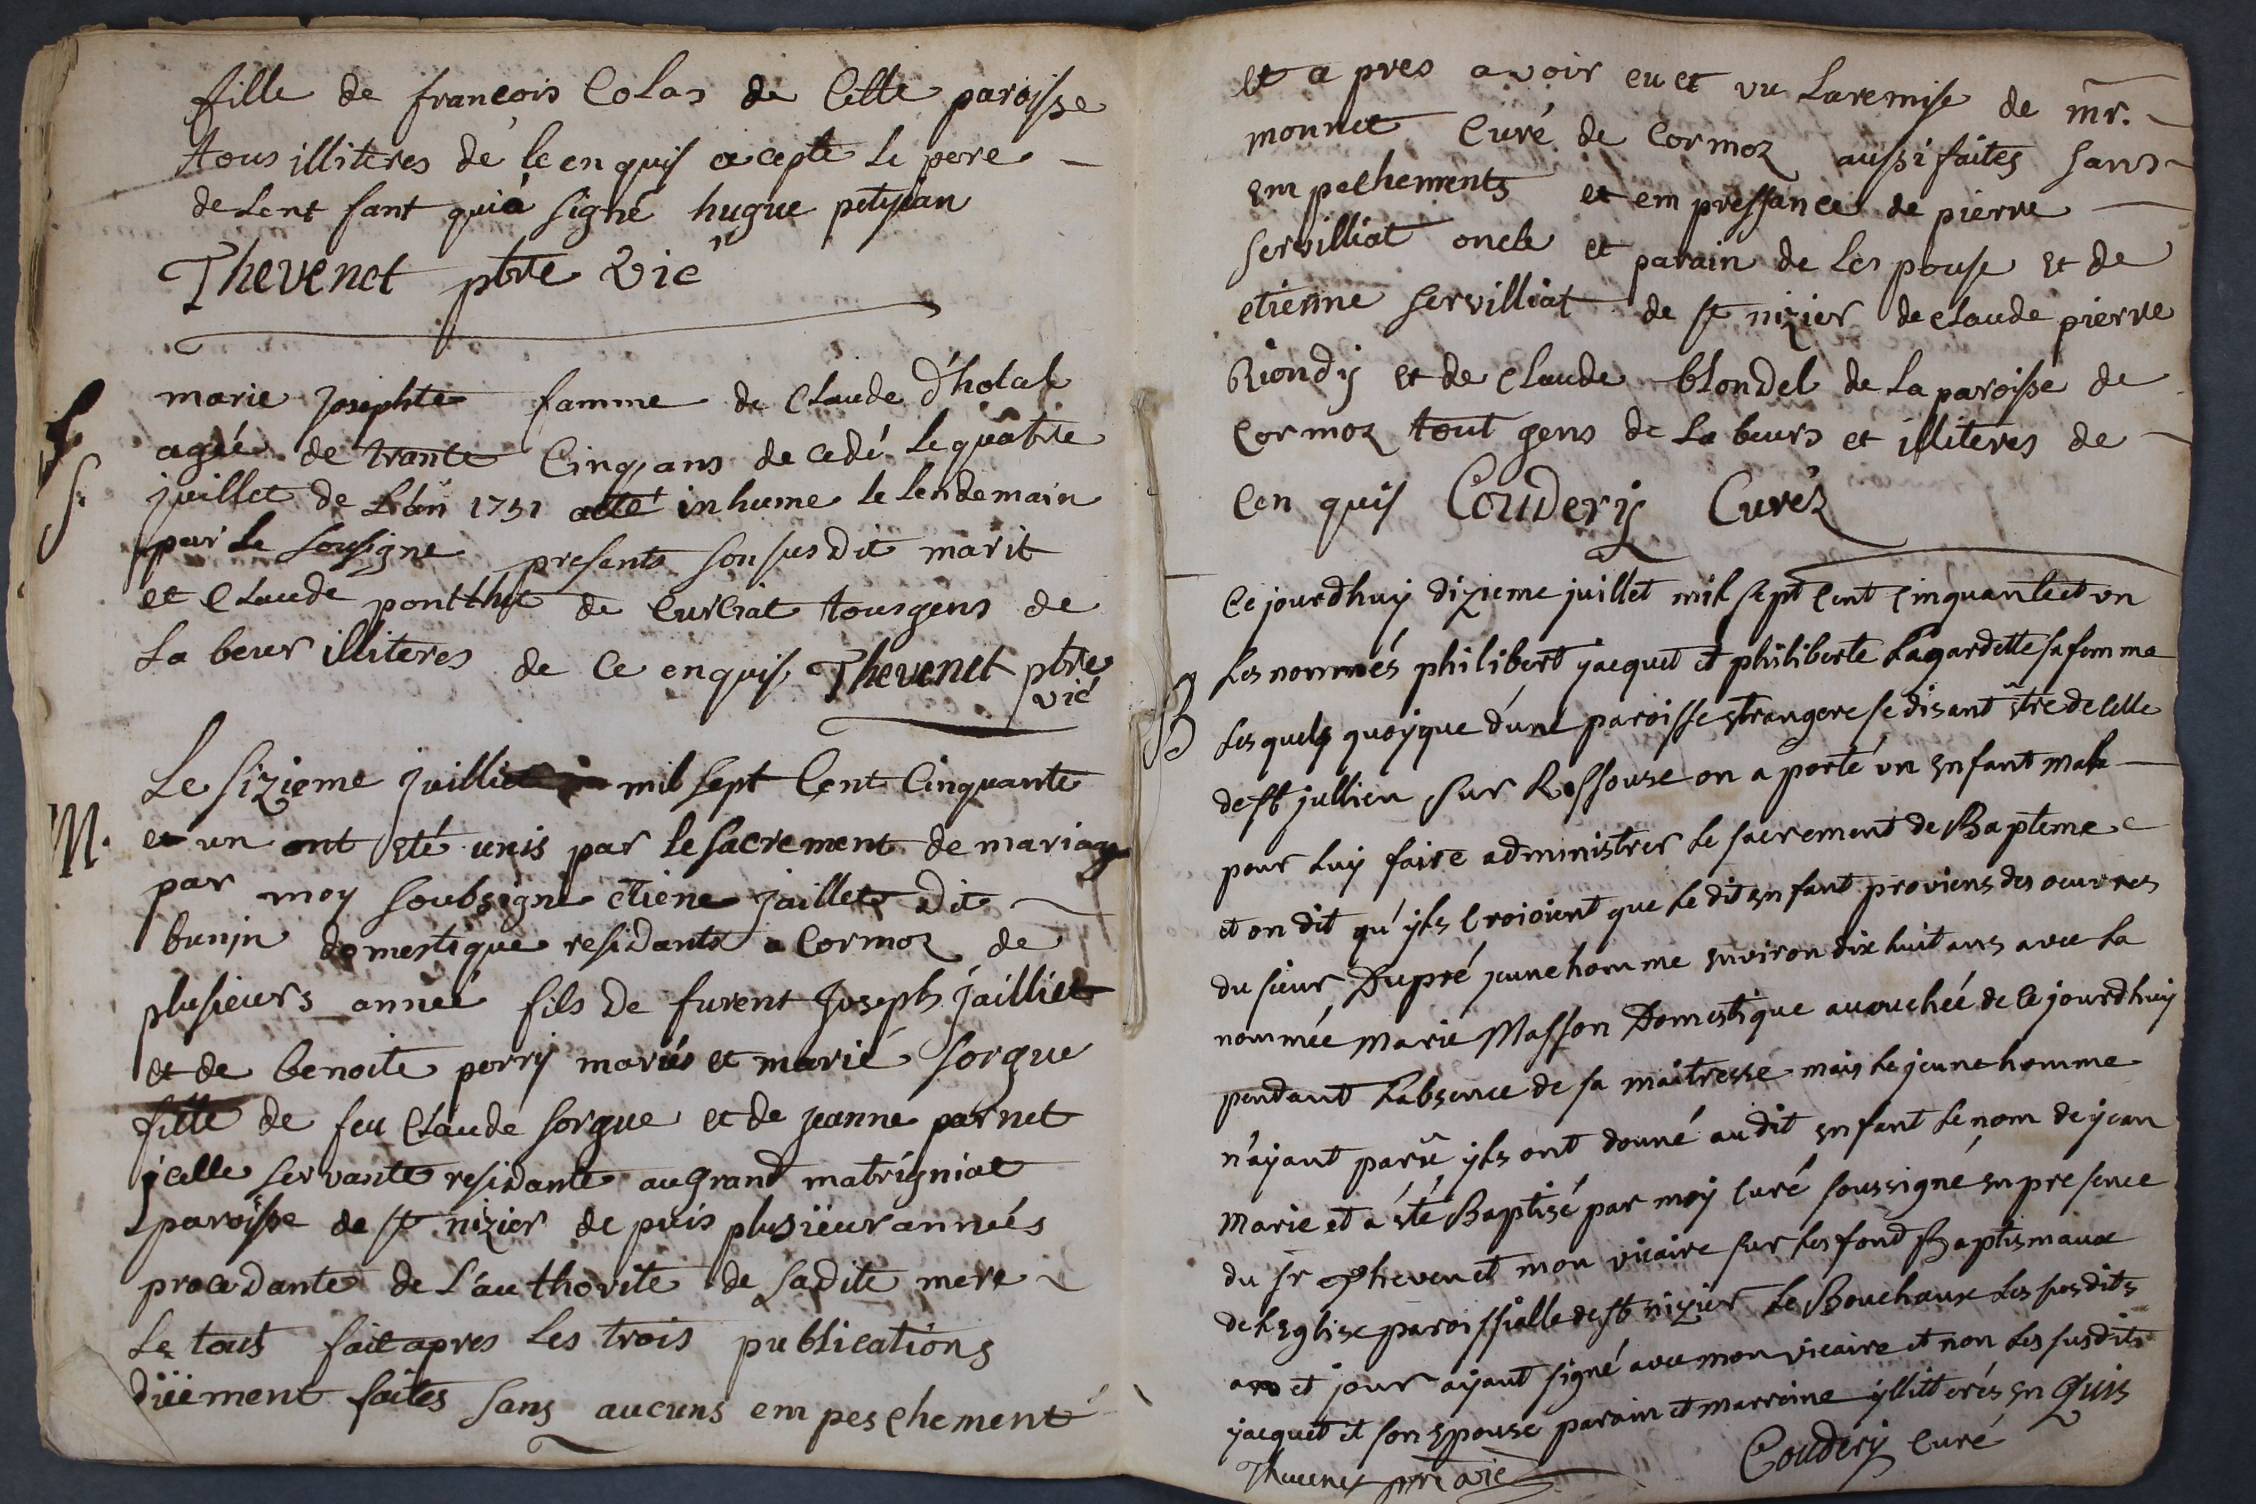 fille de francois Colas de Cette paroisse
tous illiteres de le enquis ecepte le pere
de Lent fant quia signé hugue petijean
Thevenet ptre vic
marie josephte famme de Claude d'holat
agée de trante Cinq ans decedé le quatre
juillet de L'an 1751 atté inhume le lendemain
par le sousigne presents son susdit marit
et Claude ponthut de Curciat tous gens de
La beur illiteres de ce enquis Thevenet ptre
vic
S.
Le sizieme juilliet mil sept Cent Cinquante
M. et un ont été unis par le sacrement de mariage
par moy soubsigné etiene jaillet dit
bunin domestique residante a Cormoz de
plusieurs anneé fils de furent Joseph jailliet
et de benoite perrÿ mariés et marié sorgue
fille de feu Claude sorgue et de jeanne parnet
jcelle servante residante au grand matrigniat
paroisse de st nizier de puis plusieur annués
procedante de L'authorite de sadite mere
Le tout fait apres les trois publications
düement faites sans aucuns em peschement
et a pres avoir eu et vu La remise de mr.
monnet Curé de Cormoz aussi faites sans
em pechements et em pressance de pierre
servilliat oncle et parain de Les pouse et de
etienne servilliat de st nizier de claude pierre
Riondÿ et de Claude blondel de La paroisse de
Cormoz tout gens de La beurs et illiteres de
Cen quis Couderÿ Curéz
Ce jourdhuÿ dizieme juillet mil sept Cent Cinquanteet un
Les nommés philibert jacquet et philiberte Lagardette sa femme
B Les quels quoÿque d'une paroisse etrangere se disant être de celle
de st jullien sur Ressouse on aporté un enfant male
pour Luÿ faire administrer Le sacrement de Bapteme
et on dit qu'ÿls Croioient que Le dit enfant proviens des oeuvres
du sieur Dupré jeune homme environ dix huit ans avec La
nommée Marie Masson Domestique accouchée de ce jourdhuÿ
pendant L'absence de sa maitresse mais Le jeune homme
n'aÿant parû ÿls ont donné audit enfant Le nom de jean
Marie et a été Baptisé par moÿ Curé soussigné en presence
du sr Thevenet mon vicaire sur Les fond Baptismaux
de L'Eglise paroissialle de st nizier Le Bouchaux Les susdits
an et jour aÿant signé avec mon vicaire et non Les susdits
jacquet et son epouse parain et marraine ÿllitterés en Quis
Thevenet ptre vic Couderÿ Curé